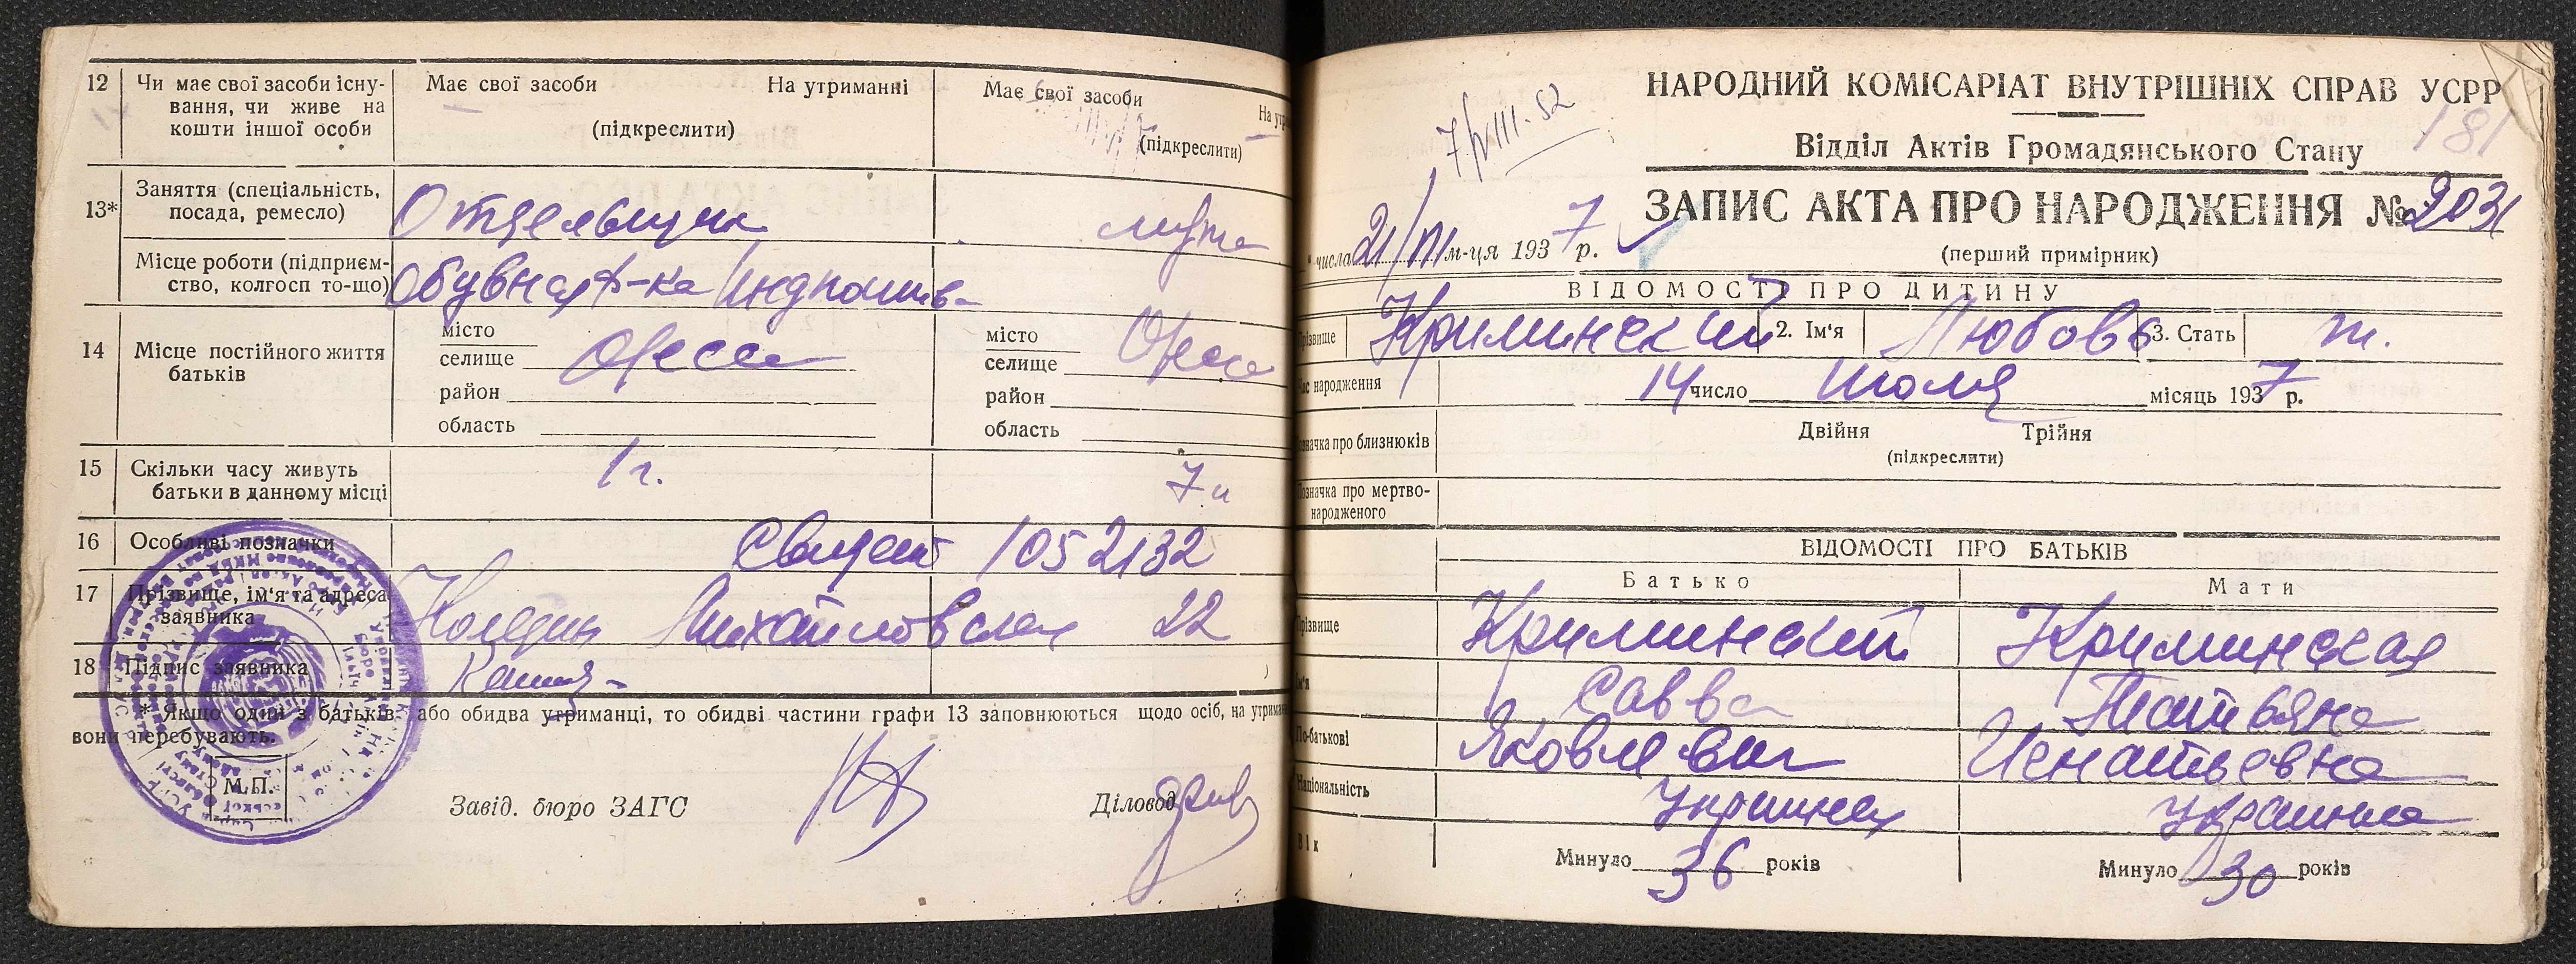 12 Чи має свої засоби існу-
вання, чи живе на
кошти іншої особи
Має свої засоби На утриманні
(підкреслити)
Має свої засоби На утри
(підкреслити)
13* Заняття (спеціальність,
посада, ремесло)
Місце роботи (підприєм-
ство, колгосп то-що) Обувная ф-ка Индпошив
14 Місце постійного життя
батьків
місто
селище Одесса
район
область
місто
селище Одесса
район
область
15 Скільки часу живуть
батьки в данному місці
1 г.
16 Особливі позначки 1052132
17 Прізвище, ім'я та адреса
заявника Михайловская 22
18 Підпис заявника
* Якщо один з батьків, або обидва утриманці, то обидві частини графи 13 заповнюються щодо осіб, на утриман
вони перебувають.
М.П.
Завід. бюро ЗАГС Діловод
7/VIII-52
НАРОДНИЙ КОМІСАРІАТ ВНУТРІШНІХ СПРАВ УСРР
181
Відділ Актів Громадянського Стану
ЗАПИС АКТА ПРО НАРОДЖЕННЯ №
(перший примірник)
числа м-ця 1937 р.
ВІДОМОСТІ ПРО ДИТИНУ
Прізвище Криминский 2. Ім'я Любовь 3. Стать ж.
Час народження 14 число Июля місяць 1937 р.
Позначка про близнюків Двійня Трійня
(підкреслити)
Позначка про мертво-
народженого
ВІДОМОСТІ ПРО БАТЬКІВ
Батько Мати
Прізвище Криминский Криминская
Ім'я Савва Татьяна
По-батькові Яковлевич Игнатьевна
Національність Украинец Украинка
Вік Минуло 36 років Минуло 30 років